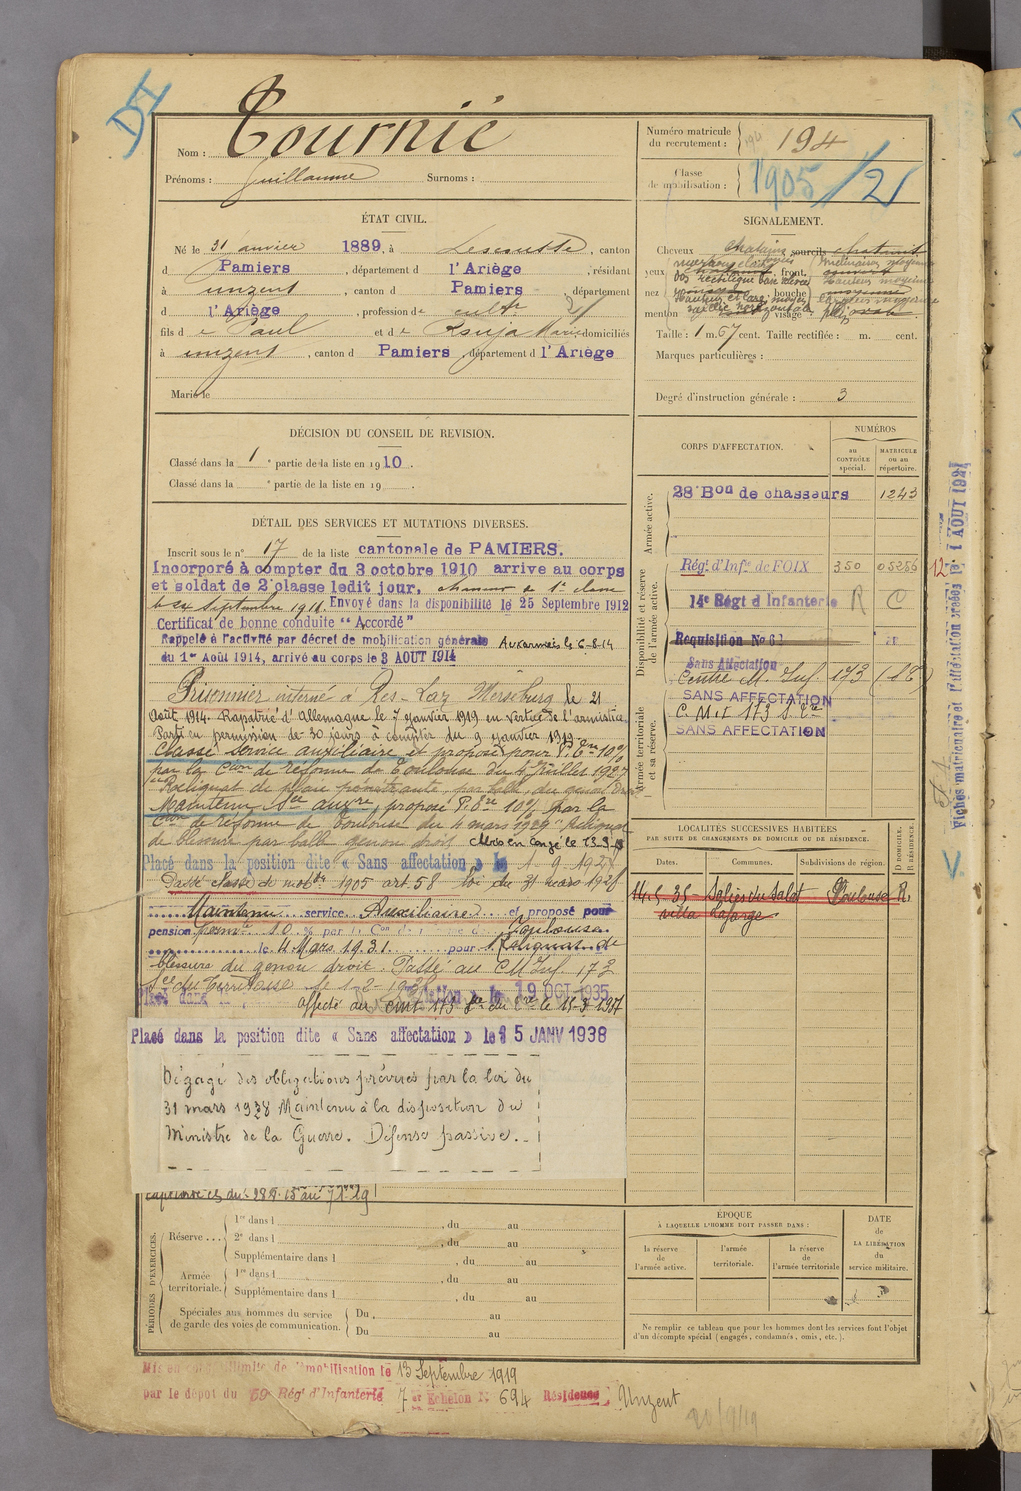 Nom : Tournié
Prénoms : Guillaume Surnoms :
Numéro matricule du recrutement : 194
Classe de mobilisation : 1905 / 21
ÉTAT CIVIL.
Né le 31 janvier 1889, à Lescousse, canton
d Pamiers, département d l'Ariège, résidant
à Unzent, canton d Pamiers, département
d l'Ariège, profession de cultr
fils d e Paul et d e Marie domiciliés
à Unzent, canton d Pamiers, département d l'Ariège
Marié le
SIGNALEMENT.
Cheveux chatains sourcils chatains
yeux, front,
nez, bouche moyenne
menton visage ovale
Taille : 1 m. 67 cent. Taille rectifiée : m. cent.
Marques particulières :
Degré d'instruction générale : 3
DÉCISION DU CONSEIL DE REVISION.
Classé dans la 1e partie de la liste en 1910.
Classé dans la e partie de la liste en 19 .
DÉTAIL DES SERVICES ET MUTATIONS DIVERSES.
Inscrit sous le n° 17 de la liste cantonale de PAMIERS.
Incorporé à compter du 3 octobre 1910 arrive au corps
et soldat de 2e classe ledit jour, chasseur de 1e classe
Septembre 1911. Envoyé dans la disponibilité le 25 Septembre 1912
Certificat de bonne conduite "Accordé"
Rappelé à l'activité par décret de mobilisation générale Aux armées le 6-8-14
du 1er Août 1914, arrivé au corps le 3 AOUT 1914
Prisonnier interné à Merseburg le 21
Août 1914. Rapatrié d'Allemagne le 7 janvier 1919 en vertu de l'armistice
Parti en permission de 30 jours à compter du 9 janvier 1919
Classé service auxiliaire et proposé pour P. 10%
par la Con de réforme de Toulouse du Juillet 1927
Reliquat de plaie pénétrante par balle, du genou droit
Maintenu Sce auxre, proposé P. 10% par la
Con de réforme de Toulouse du 4 mars 1929 "Reliquat
de blessure par balle genou droit
Placé dans la position dite « Sans affectation » le 1-9-1928
Passé classe de mobon 1905 art 58 loi du 31 mars 1928
Maintenu service Auxiliaire et proposé pour
pension permte 10 % par la Con de Toulouse
le 4 Mars 1931 pour Reliquat de
blessure du genou droit. Passé au CM Inf. 173
le 1-2-19
19 OCT 1935
Affecté au cmI 173 le 15-3-1937
Placé dans la position dite « Sans affectation » le 15 JANV 1938
Dégagé des obligations prévues par la loi du
31 mars 1928 Maintenu à la disposition du
Ministre de la Guerre. Défense passive.
CORPS D'AFFECTATION.
NUMÉROS
au CONTRÔLE spécial.
MATRICULE ou au répertoire.
Armée active.
28e Bon de chasseurs 1243
Disponibilité et réserve de l'armée active.
Régt d'Infie de FOIX 350 05256
14e Régt d'Infanterie R C
Réquisition No 61
Sans Affectation
Centre M. Inf. 173
SANS AFFECTATION
C. M. I 173
SANS AFFECTATION
Armée territoriale et sa réserve.
Fiches matriculaire et d'affectation créées le 1 AOUT 1921
LOCALITÉS SUCCESSIVES HABITÉES
PAR SUITE DE CHANGEMENTS DE DOMICILE OU DE RÉSIDENCE.
Dates. Communes. Subdivisions de région. D DOMICILE. R RÉSIDENCE.
14.5.35 Salies du Salat Toulouse R.
villa Lafarge
PÉRIODES D'EXERCICES.
Réserve . . . 1re dans l , du au
2e dans l , du au
Supplémentaire dans l , du au
Armée territoriale. 1re dans l , du au
Supplémentaire dans l , du au
Spéciales aux hommes du service de garde des voies de communication. Du , au
Du , au
ÉPOQUE
À LAQUELLE L'HOMME DOIT PASSER DANS :
la réserve de l'armée active.
l'armée territoriale.
la réserve de l'armée territoriale
DATE de LA LIBÉRATION du service militaire.
Ne remplir ce tableau que pour les hommes dont les services font l'objet
d'un décompte spécial (engagés, condamnés, omis, etc.).
Mis en congé illimité de démobilisation le 13 Septembre 1919
par le dépôt du 59 Régt d'Infanterie 7e Echelon No 694 Résidence Unzent
20/9/19